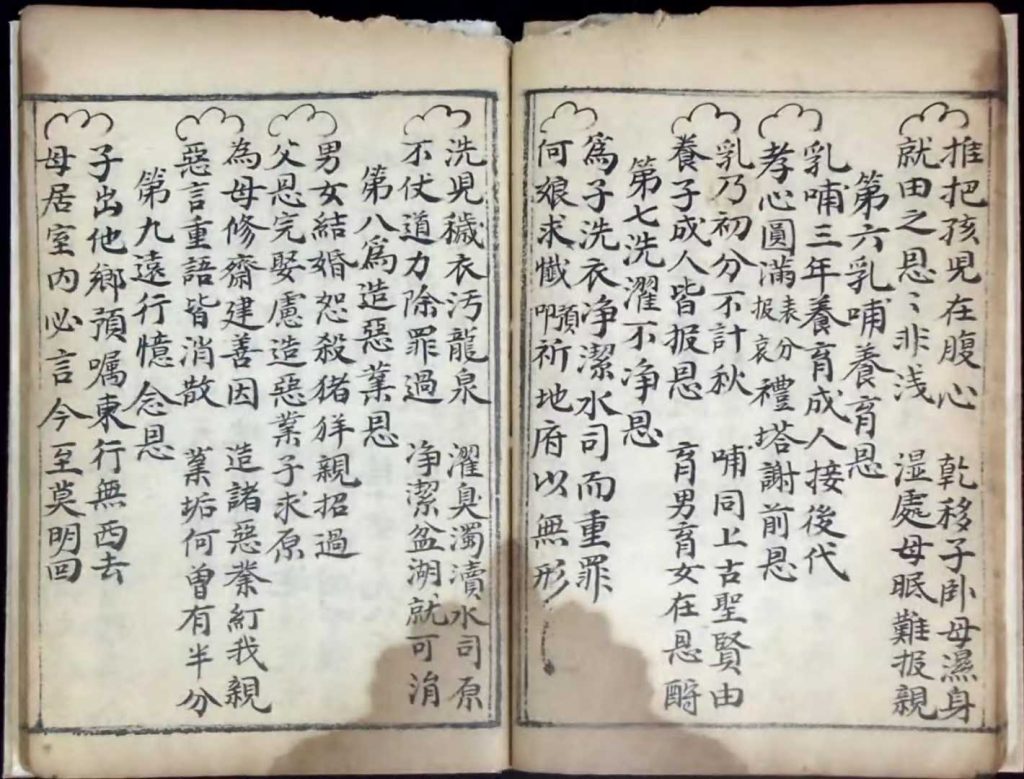 推把孩児在腹心　乾移子卧母濕身
就田之恩〻非浅　湿處母眠難报親
第六乳哺養育恩
乳哺三年養育成人接後代
孝心圓滿表分报哀禮塔謝前恩
乳乃初分不計秋　哺同上古聖賢由
養子成人皆报恩　育男育女在恩酹
第七洗濯不净恩
爲子洗衣净潔水司而重罪
何娘求懺預叩祈地府以無形
洗児穢衣汚龍泉　濯臭濁瀆水司原
不仗道力除罪過　净潔盆湖就可消
第八爲造惡業恩
男女結婚恕殺猪羊親招過
父恩完娶慮造惡業子求原
為母修齋建善因　造諸惡業紅我親
惡言重語皆消散　業垢何曾有半分
第九遠行憶念恩
子出他鄉預嘱東行無西去
母居室内必言今至莫明回